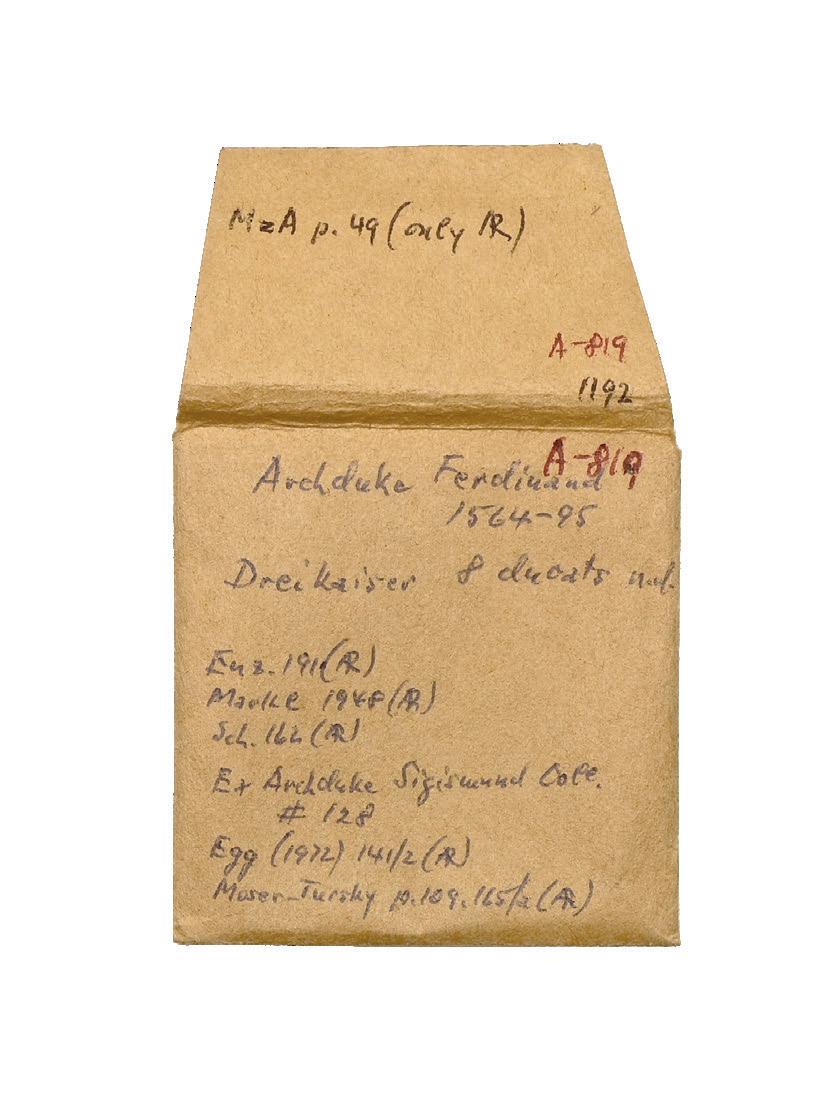 MzA p. 49 (only AR)
A-819
1192
A-819
Archduke Ferdinand
1564-95
Dreikaiser 8 ducats n.d.
Enz. 191 (AR)
Markl 1948 (AR)
Sch. 162 (AR)
Ex Archduke Sigismund Coll.
# 128
Egg (1972) 141/2 (AR)
Moser-Tursky p. 109. 165/a (AR)